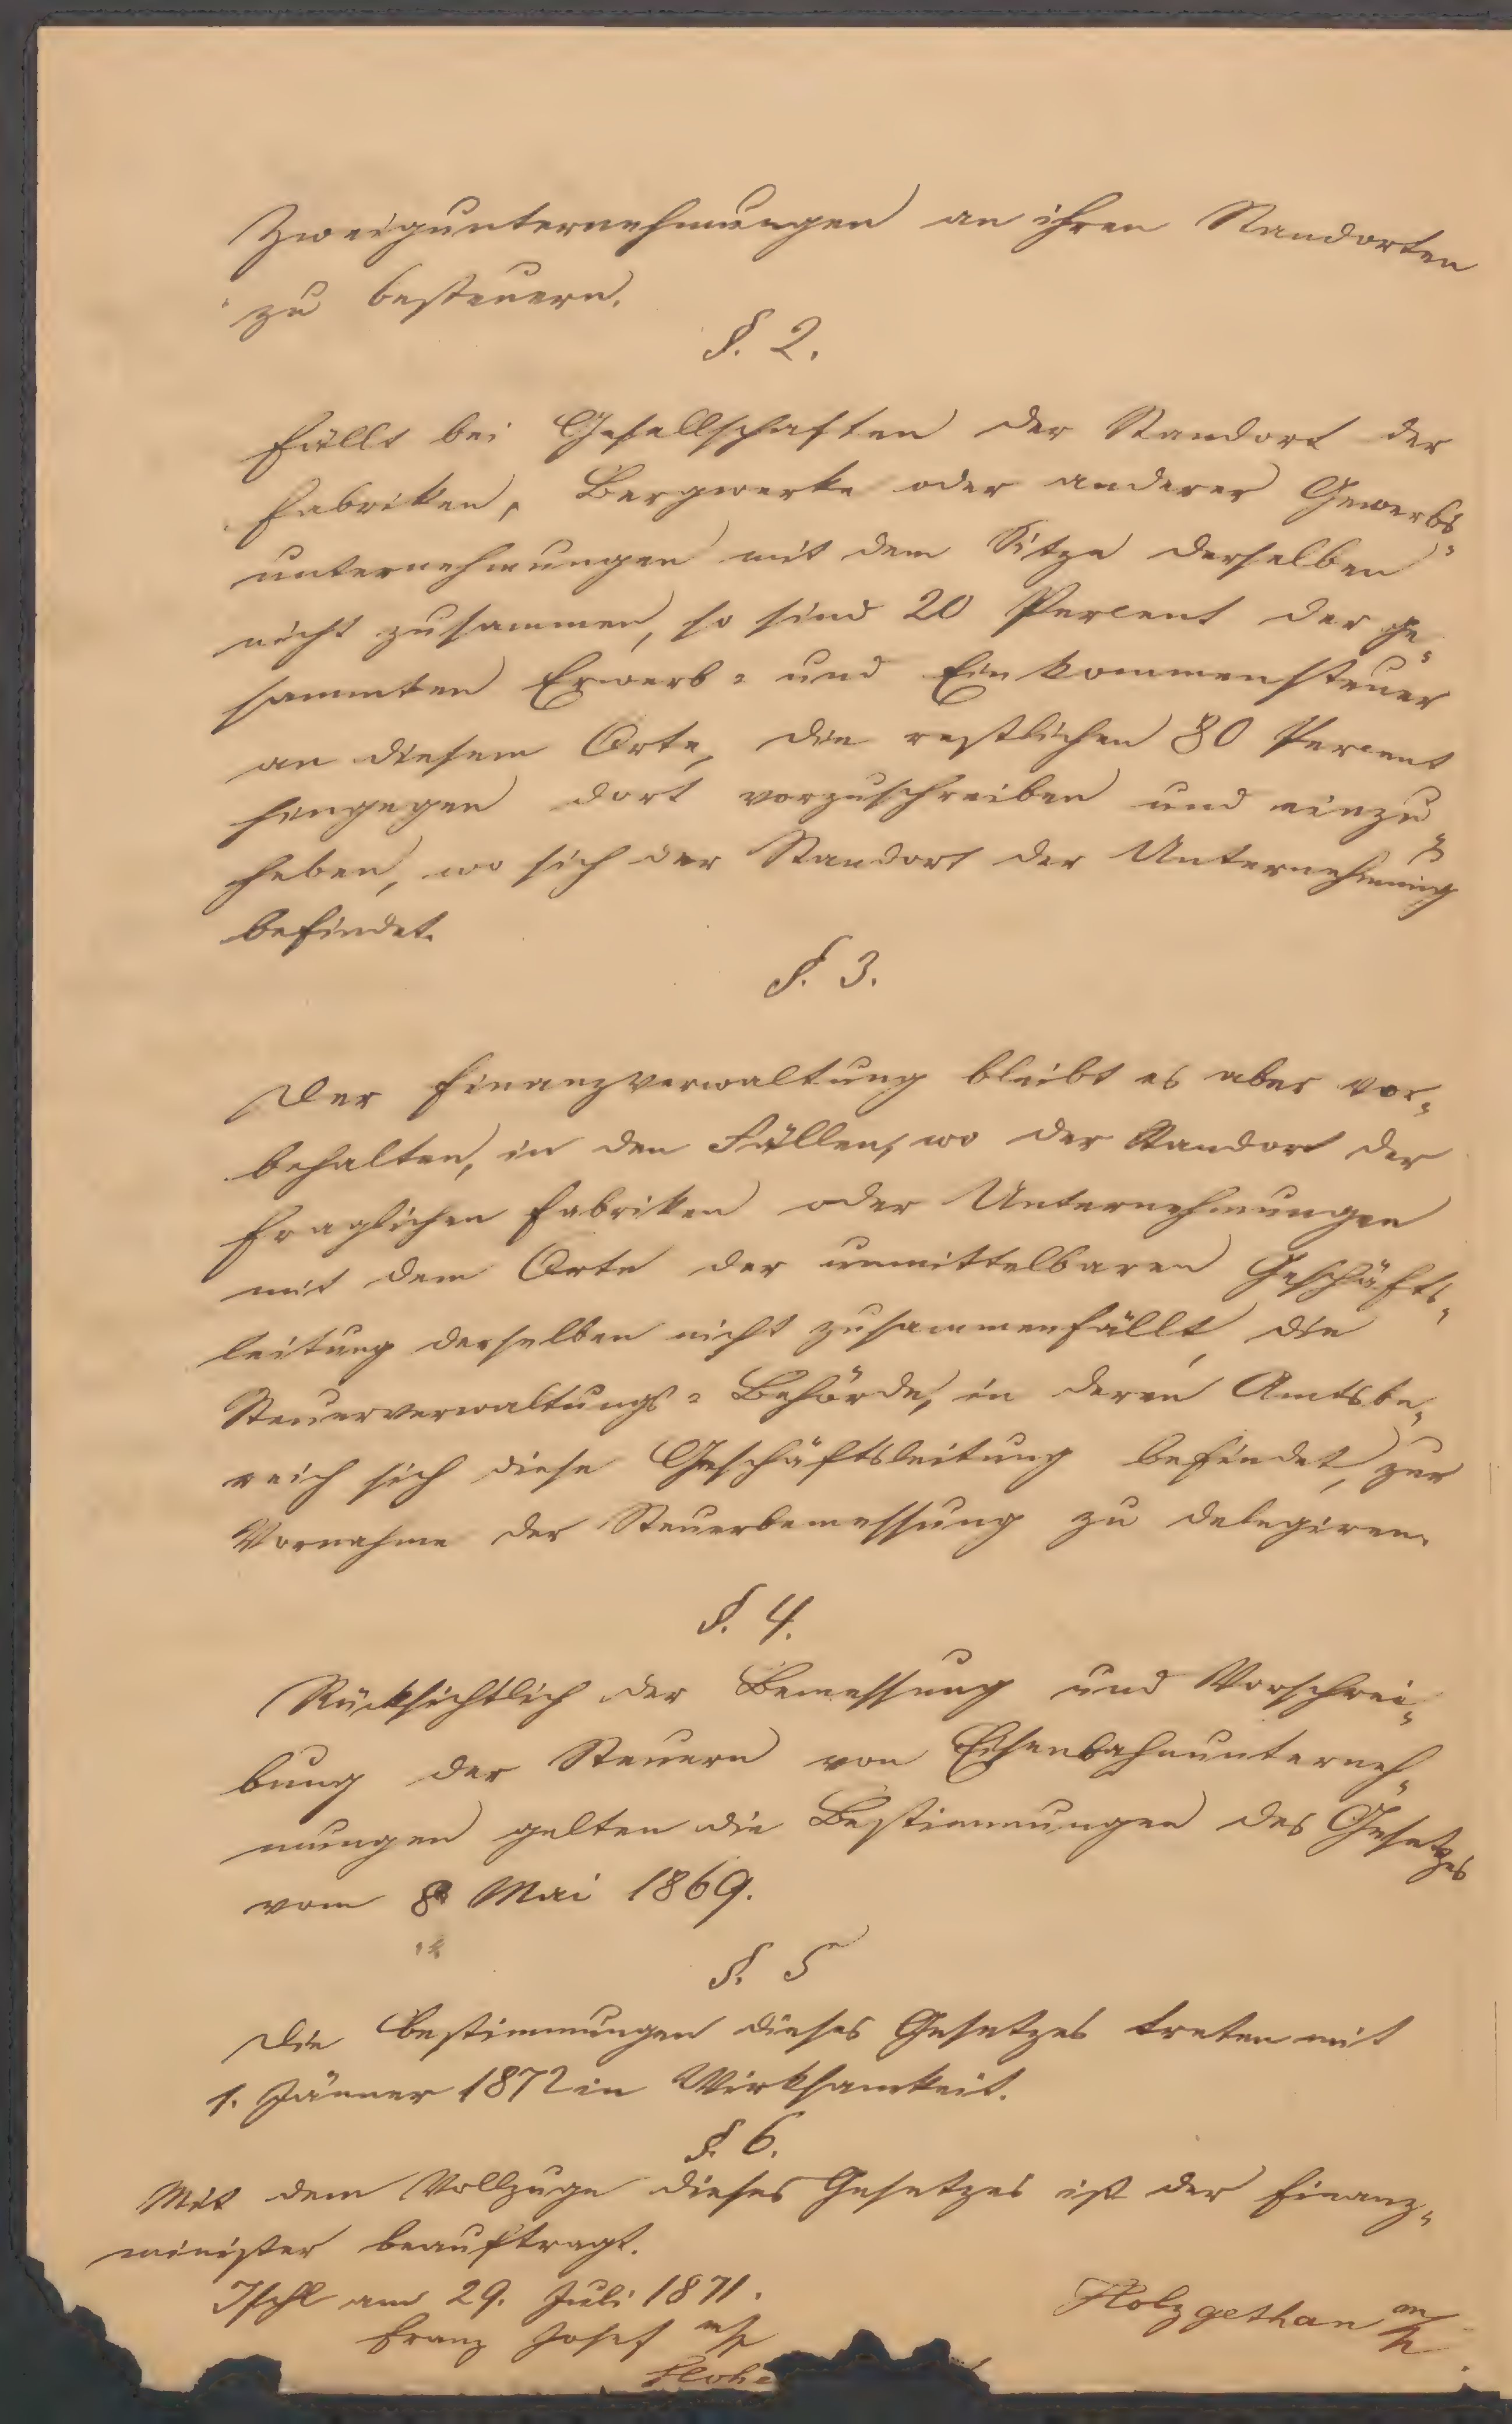 Zweigunternehmungen an ihren Standorten
zu besteuern.
§. 2.
Fällt bei Gesellschaften der Standort der
Fabriken, Bergwerke oder anderer Gewerbs-
unternehmungen mit dem Sitze derselben
nicht zusammen, so sind 20 Percent der ge-
sammten Erwerb- und Einkommensteuer
an diesem Orte, die restlichen 80 Percent
hingegen dort vorzuschreiben und einzu-
heben, wo sich der Standort der Unternehmung
befindet.
§. 3.
Der Finanzverwaltung bleibt es aber vor-
behalten, in den Fällen, wo der Standort der
fraglichen Fabriken oder Unternehmungen
mit dem Orte der unmittelbaren Geschäfts-
leitung derselben nicht zusammenfällt, die
Steuerverwaltungs-Behörde, in deren Amtsbe-
reich sich diese Geschäftsleitung befindet, zur
Vornahme der Steuerbemessung zu delegiren.
§. 4.
Rücksichtlich der Bemessung und Vorschrei-
bung der Steuern von Eisenbahnunterneh-
mungen gelten die Bestimmungen des Gesetzes
vom 8 Mai 1869.
§. 5
Die Bestimmungen dieses Gesetzes treten mit
1. Jänner 1872 in Wirksamkeit.
§. 6.
Mit dem Vollzuge dieses Gesetzes ist der Finanz-
minister beauftragt.
Ischl am 29. Juli 1871.
Franz Josef m/p
Holzgethan m/p.
Hohe